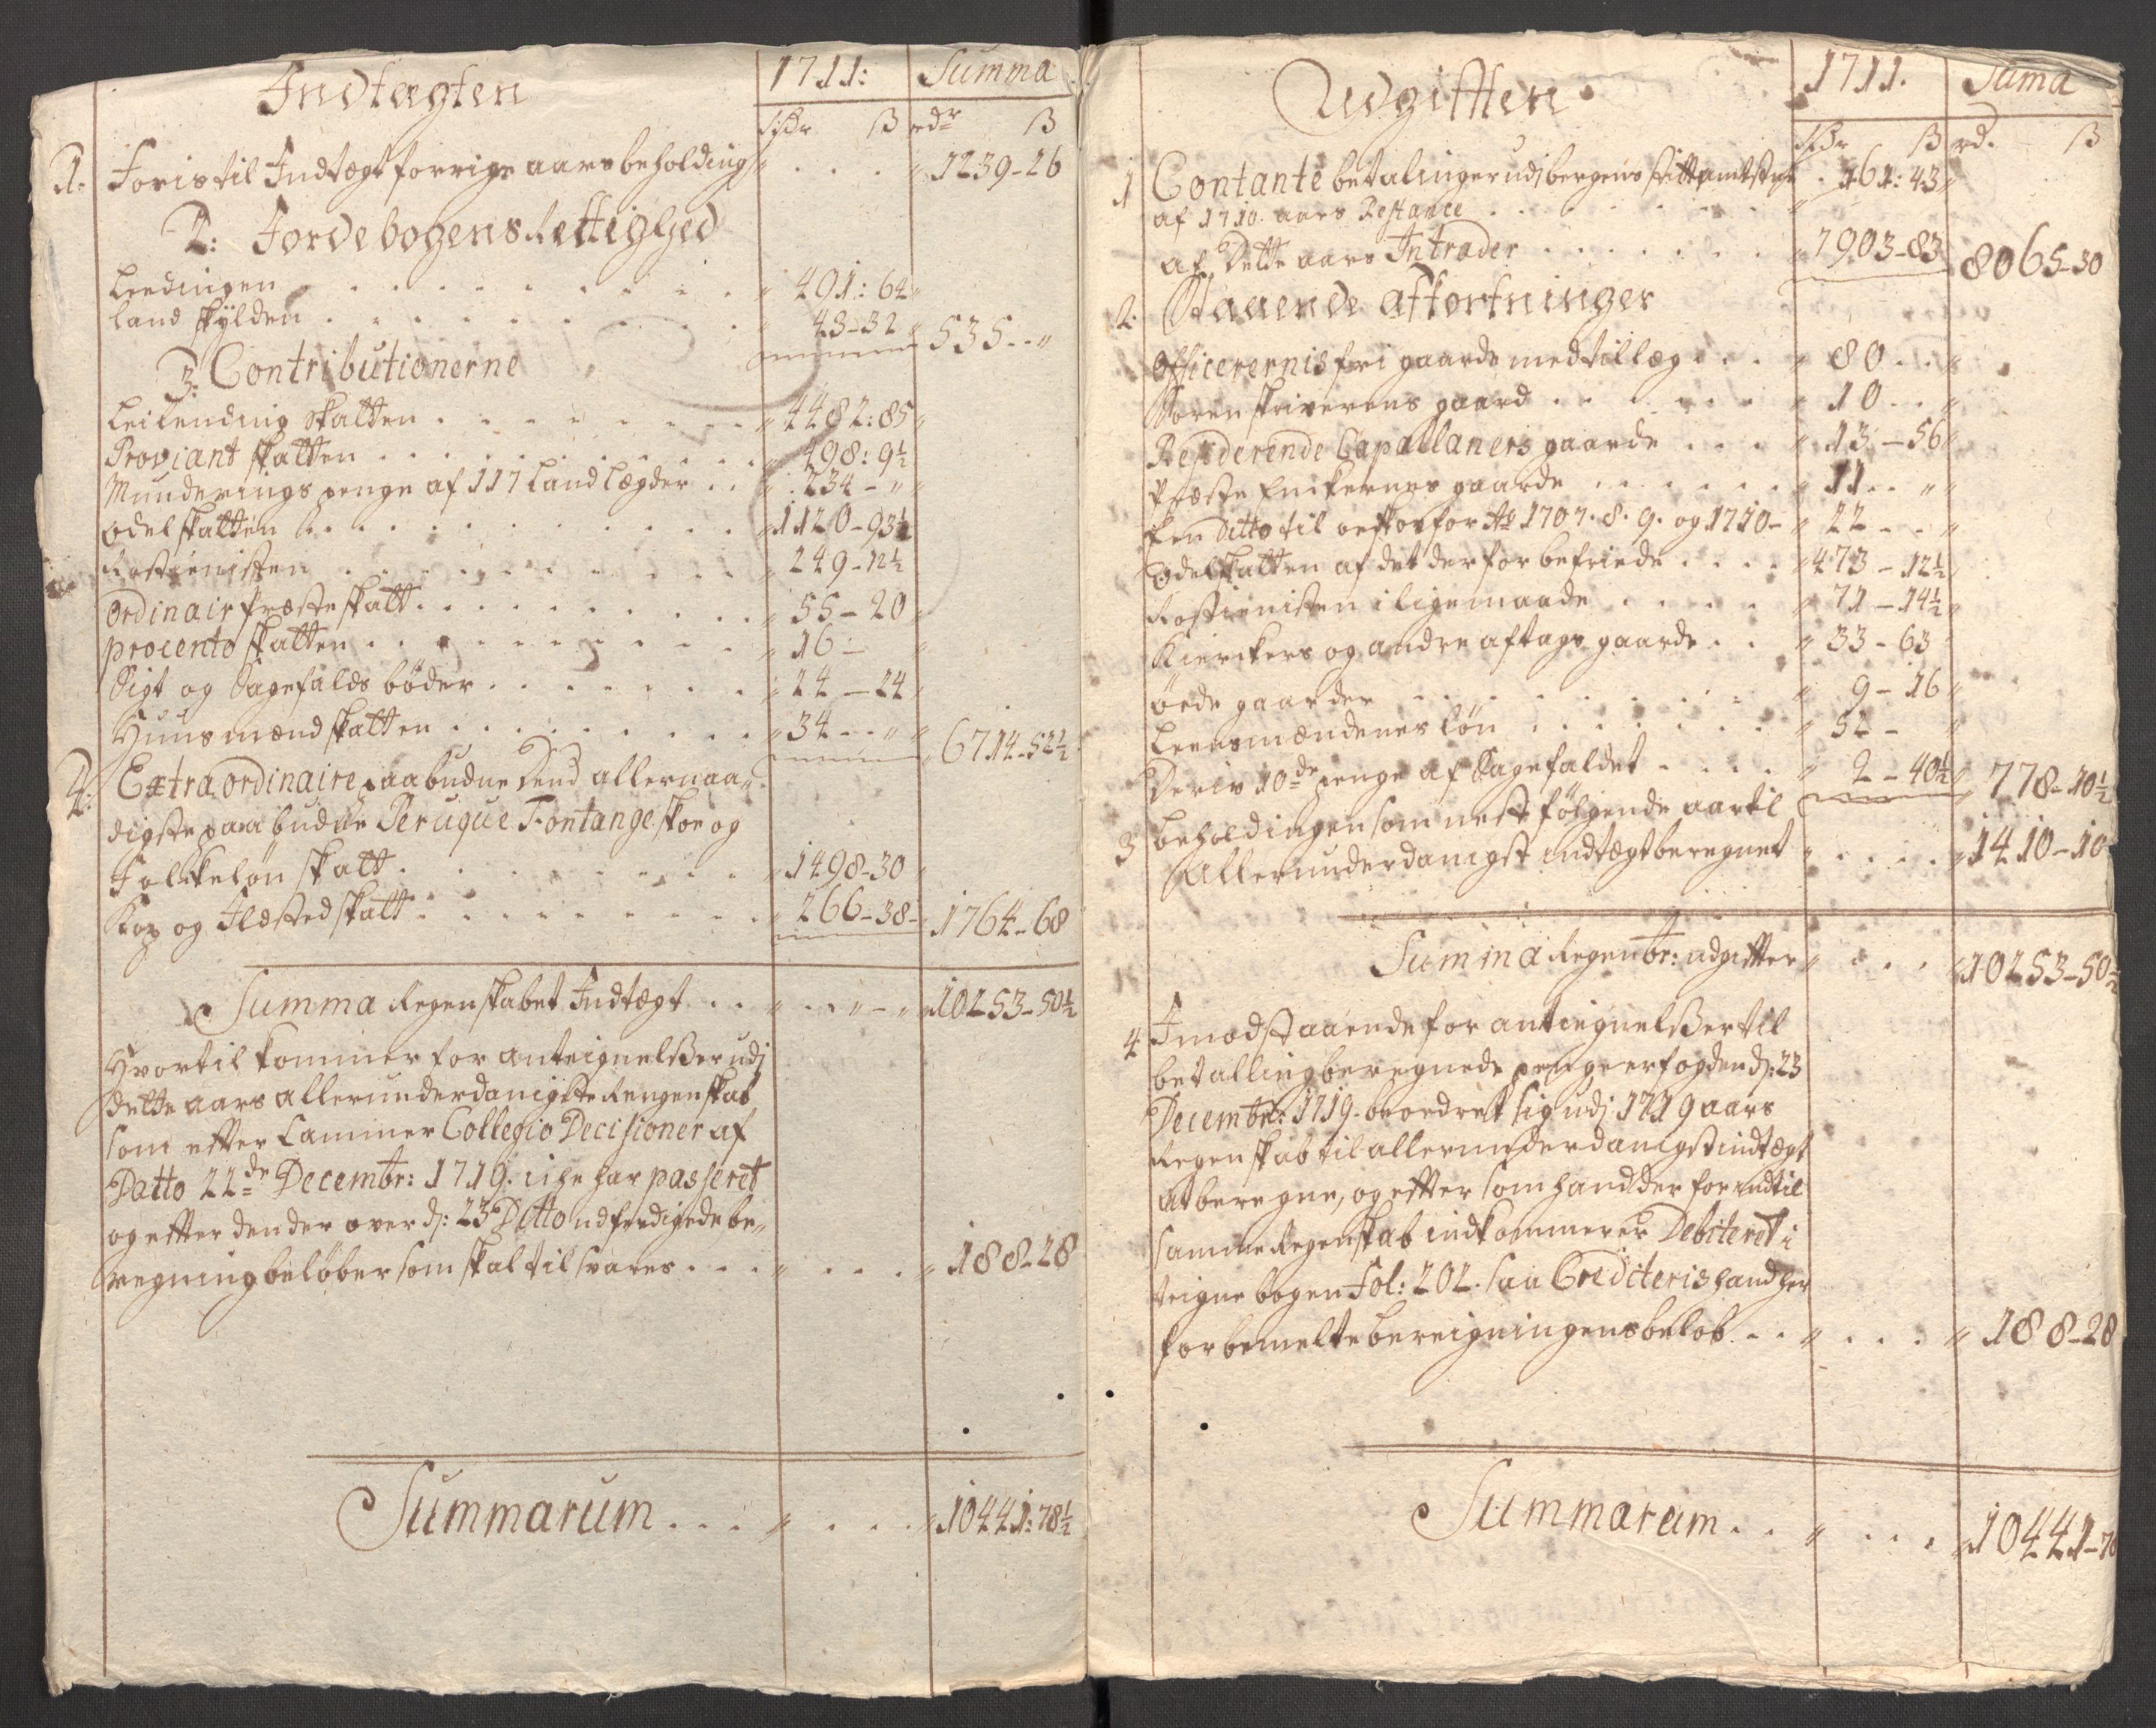 Indtægten 1711: Summa
rdr ß rdr ß
1. Føris til Indtægt forrige aars beholding 1239-26
2: Jordebogens Rettighed
Leedingen 491: 64
Land skÿlden 43-32 535
3. Contributionerne
Leilending Skatten 4482: 85
Proviant skatten 498: 9½
Munderings penge af 117 Land Lægder 234-"
Odel skatten 1120-93½
Rostienisten 249-12½
Ordinair Præste skatt 55-20
procento skatten 16-
Sigt og Sagefalds bøder 24-24
Huusmænd skatten 34-" 6714-52½
4: Extraordinaire paabudne Dend allernaa-
digste paabudne Peruque Fontange skoe og
Folckeløn skatt 1498-30
Kop og Ildsted skatt 266-38 1764-68
Summa Regenskabet Indtægt 10253-50½
Hvortil kommer for anteignelsser udj
dette aars allerunderdanigste Rengenskab
som effter Cammer Collegio Decisioner af
Datto 22de Decembr: 1719. iche har passeret
og effter den der over d: 23 Ditto udferdigede be-
regning beløber som skal til svares 188-28
Summarum 10441: 78½
Udgifften 1711. Suma
rdr ß rd. ß
1 Contante betalinger udj bergens stifftamtstue
af 1710. aars Restance 161: 43
af Dette aars Intrader 7903-83 8065-30
2. Staaende afkortninger
Officerernis fri gaarde med tillæg 80
Sorenskriverens gaard 10
Residerende Capallaners gaarde 13-56
Præste Enckernes gaarde 11
Een Ditto til for Ao 1707. 8. 9. og 1710- 22
Odelskatten af det derfor befriede 473-12½
Rostienisten i ligemaade 71-14½
Kierckers og andre aftags gaarde 33-63
øede gaarder 9-16
Leensmændenes løn 52-
Deriv 10de penge af Sagefaldet 2-40½ 778-10½
3 beholdingen som nest følgende aar til
Allerunderdanigst indtægt beregnet 1410-10
Summa Regenbr: udgiffter 10253-50½
4 Imodstaaende for antiegnelsser til
betalling beregnede penge er fogden d: 23
Decembr: 1719. beordret sig udj 1719 aars
Regenskab til allerunderdanigst indtægt
at beregne, og effter som hand der for ind til
samme Regenskab indkommer er Debiteret i
teigne bogen Fol: 202. saa Crediteris hand her
forbemelte bereigningens beløb 188-28
Summarum 10441-78